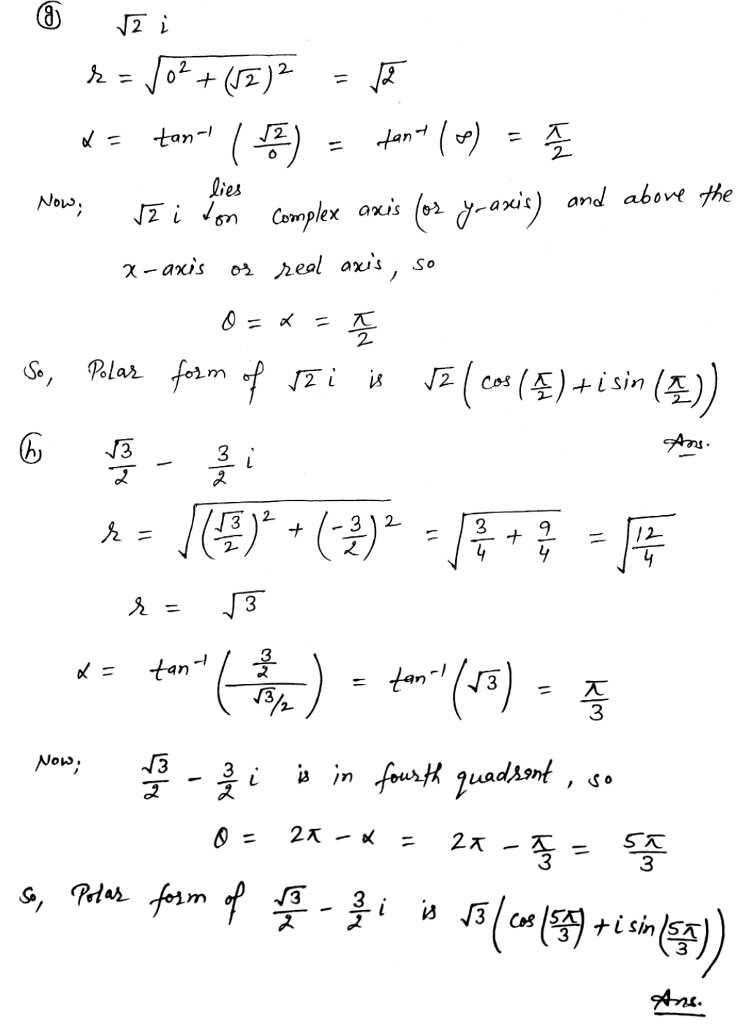 (g) √2 i
r = √(0² + (√2)²) = √2
α = tan⁻¹ (√2/0) = tan⁻¹ (∞) = π/2
Now; √2 i lies on complex axis (or y-axis) and above the
x-axis or real axis, so
θ = α = π/2
So, Polar form of √2 i is √2 (cos (π/2) + i sin (π/2))
Ans.
(h) √3/2 - 3/2 i
r = √((√3/2)² + (-3/2)²) = √(3/4 + 9/4) = √(12/4)
r = √3
α = tan⁻¹ ((3/2)/(√3/2)) = tan⁻¹ (√3) = π/3
Now; √3/2 - 3/2 i is in fourth quadrant, so
θ = 2π - α = 2π - π/3 = 5π/3
So, Polar form of √3/2 - 3/2 i is √3 (cos (5π/3) + i sin (5π/3))
Ans.